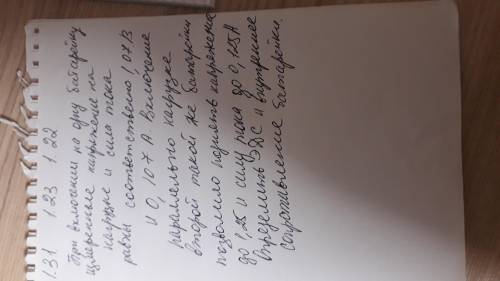 1.31 1.23 1.22
При включении на одну батарейку
измеренные напряжение на
нагрузке и сила тока
равны соответственно 1,07В
и 0,107 А. Включение
параллельно нагрузке
второй такой же батарейки
позволило поднять напряжение
до 1,25 и силу тока до 0,125А
Определить ЭДС и внутреннее
сопротивление батарейки.